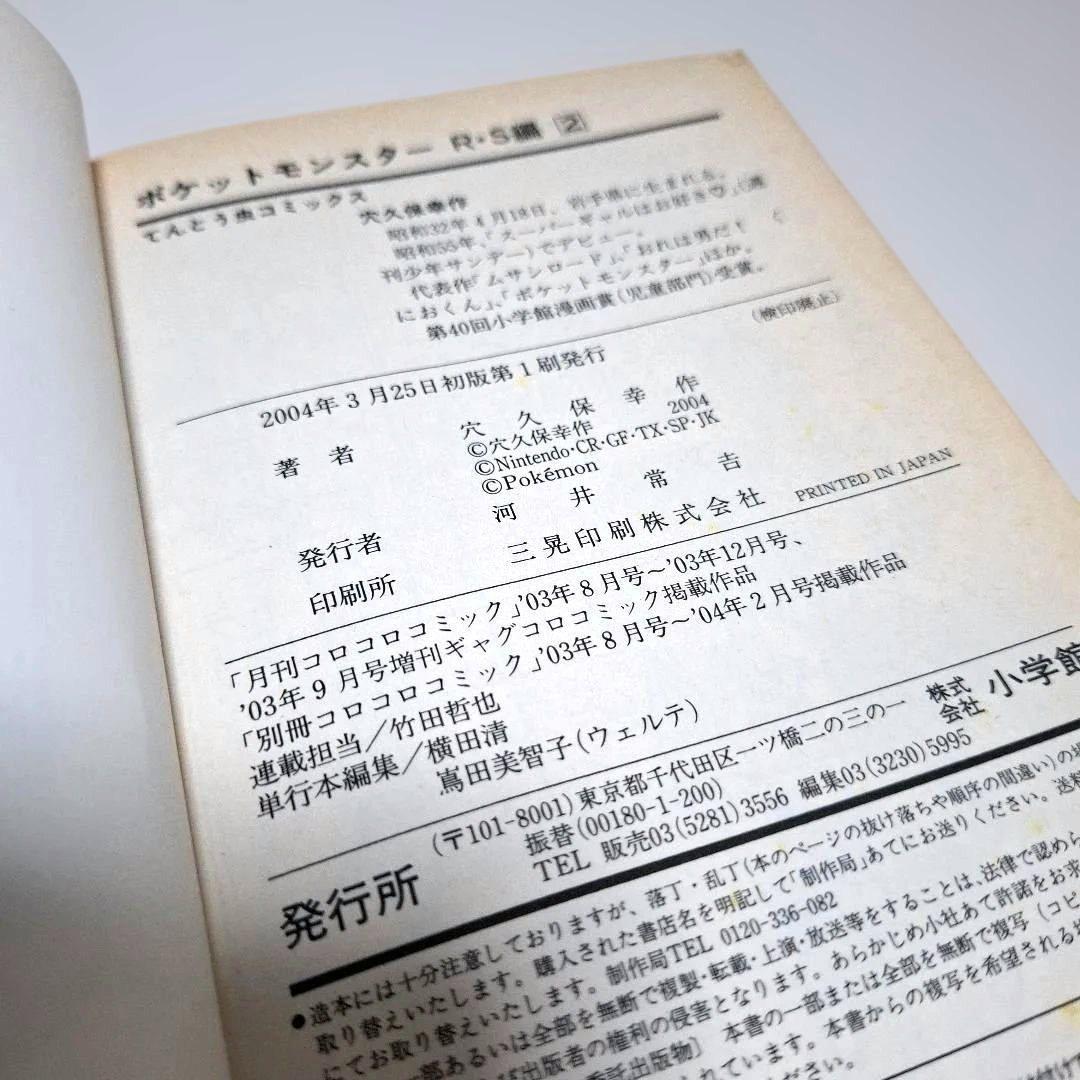 ポケットモンスター R・S編 2
てんとう虫コミックス
穴久保幸作
昭和32年4月18日、岩手県に生まれる。
昭和55年、「スーパーギャルはお好き♡」(週
刊少年サンデー)でデビュー。
代表作「ムサシロード」、「おれは男だ!く
におくん」、「ポケットモンスター」ほか。
第40回小学館漫画賞(児童部門)受賞。
(検印廃止)
2004年3月25日初版第1刷発行
著者 穴久保幸作
©穴久保幸作 2004
©Nintendo・CR・GF・TX・SP・JK
©Pokémon
発行者 河井常吉
印刷所 三晃印刷株式会社
PRINTED IN JAPAN
「月刊コロコロコミック」'03年8月号〜'03年12月号、
'03年9月号増刊ギャグコロコミック掲載作品
「別冊コロコロコミック」'03年8月号〜'04年2月号掲載作品
連載担当/竹田哲也
単行本編集/横田清
嶌田美智子(ウェルテ)
発行所
(〒101-8001)東京都千代田区一ツ橋二の三の一 株式会社 小学館
振替(00180-1-200)
TEL 販売03(5281)3556 編集03(3230)5995
●造本には十分注意しておりますが、落丁・乱丁(本のページの抜け落ちや順序の間違い)の場
取り替えいたします。購入された書店名を明記して「制作局」あてにお送りください。送料
にてお取り替えいたします。制作局TEL 0120-336-082
一部あるいは全部を無断で複製・転載・上演・放送等をすることは、法律で認めら
び出版者の権利の侵害となります。あらかじめ小社あて許諾をお求
委託出版物〕 本書の一部または全部を無断で複写(コピ
されています。本書からの複写を希望される場
ください。